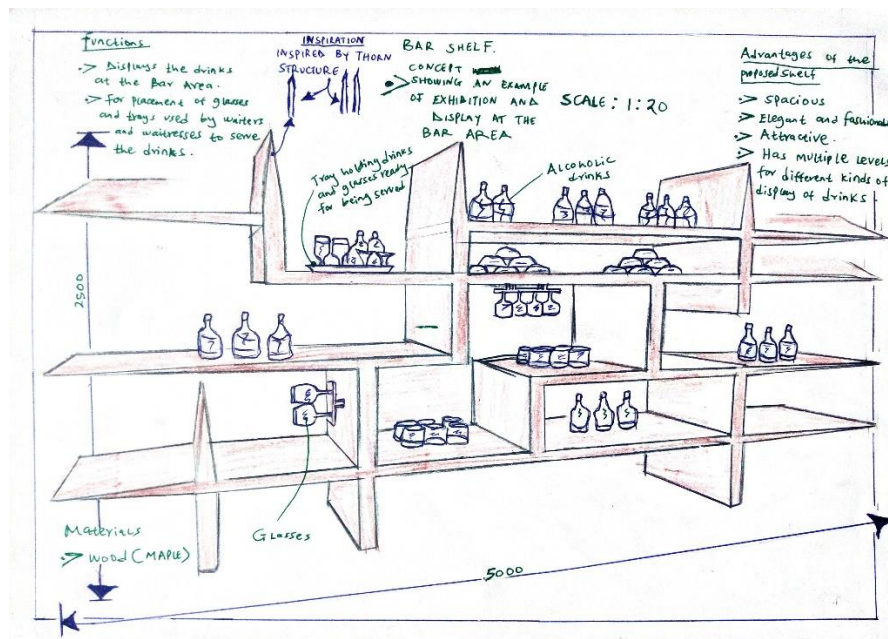 functions
Displays the drinks
at the Bar Area.
for placement of glasses
and trays used by waiters
and waitresses to serve
the drinks.
INSPIRATION
INSPIRED BY THORN
STRUCTURE
BAR SHELF.
CONCEPT
SHOWING AN EXAMPLE
OF EXHIBITION AND
DISPLAY AT THE
BAR AREA
SCALE: 1:20
Advantages of the
proposed shelf
spacious
Elegant and fashionable
Attractive.
Has multiple levels
for different kinds of
display of drinks.
Tray holding drinks
and glasses ready
for being served
Alcoholic
drinks
2500
Glasses
Materials
wood (MAPLE)
5000